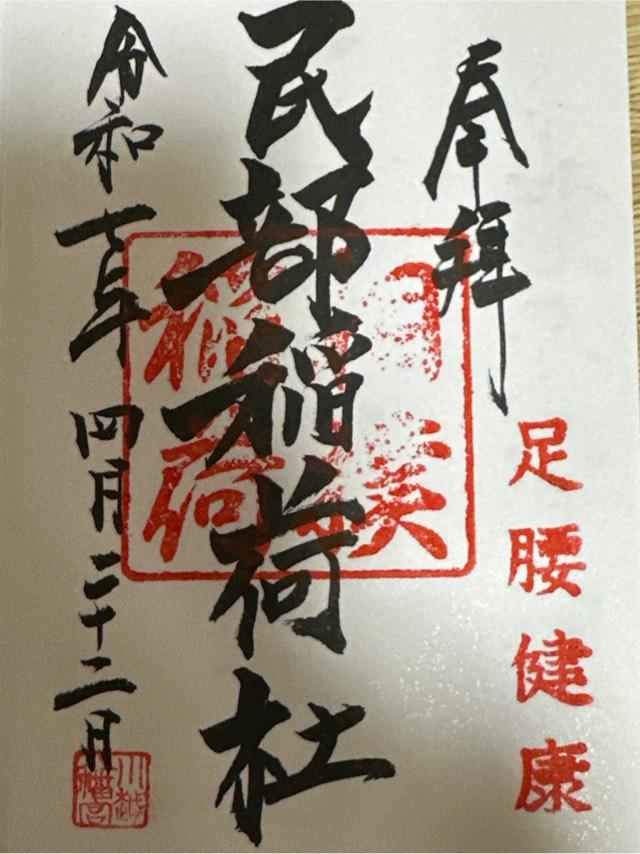 奉拝
足腰健康
民部稲荷社
相撲
稲荷
令和七年四月二十二日
川越
幡宮